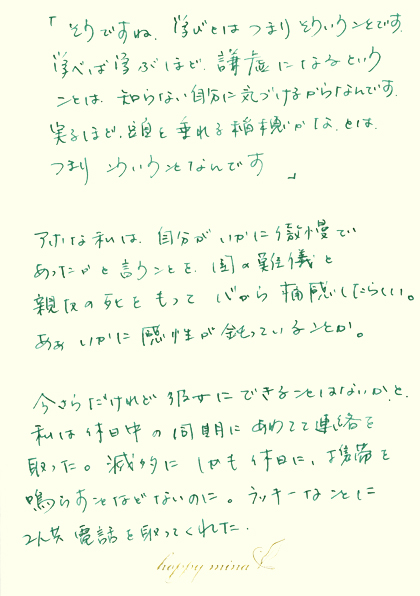 「そうですね、学びとはつまりそういうことです。
学べば学ぶほど、謙虚になるという
ことは、知らない自分に気づけるからなんです。
実るほど、頭を垂れる稲穂かな、とは、
つまりそういうことなんです 」
アホな私は、自分がいかに傲慢で
あったかと言うことを、国の難儀と
親友の死をもって心から痛感したらしい。
ああ いかに感性が鈍っていることか。
今さらだけれど彼女にできることはないかと、
私は休日中の同期にあわてて連絡を
取った。滅多に しかも休日に、携帯を
鳴らすことなどないのに。ラッキーなことに
2人共 電話を取ってくれた。
happy mina